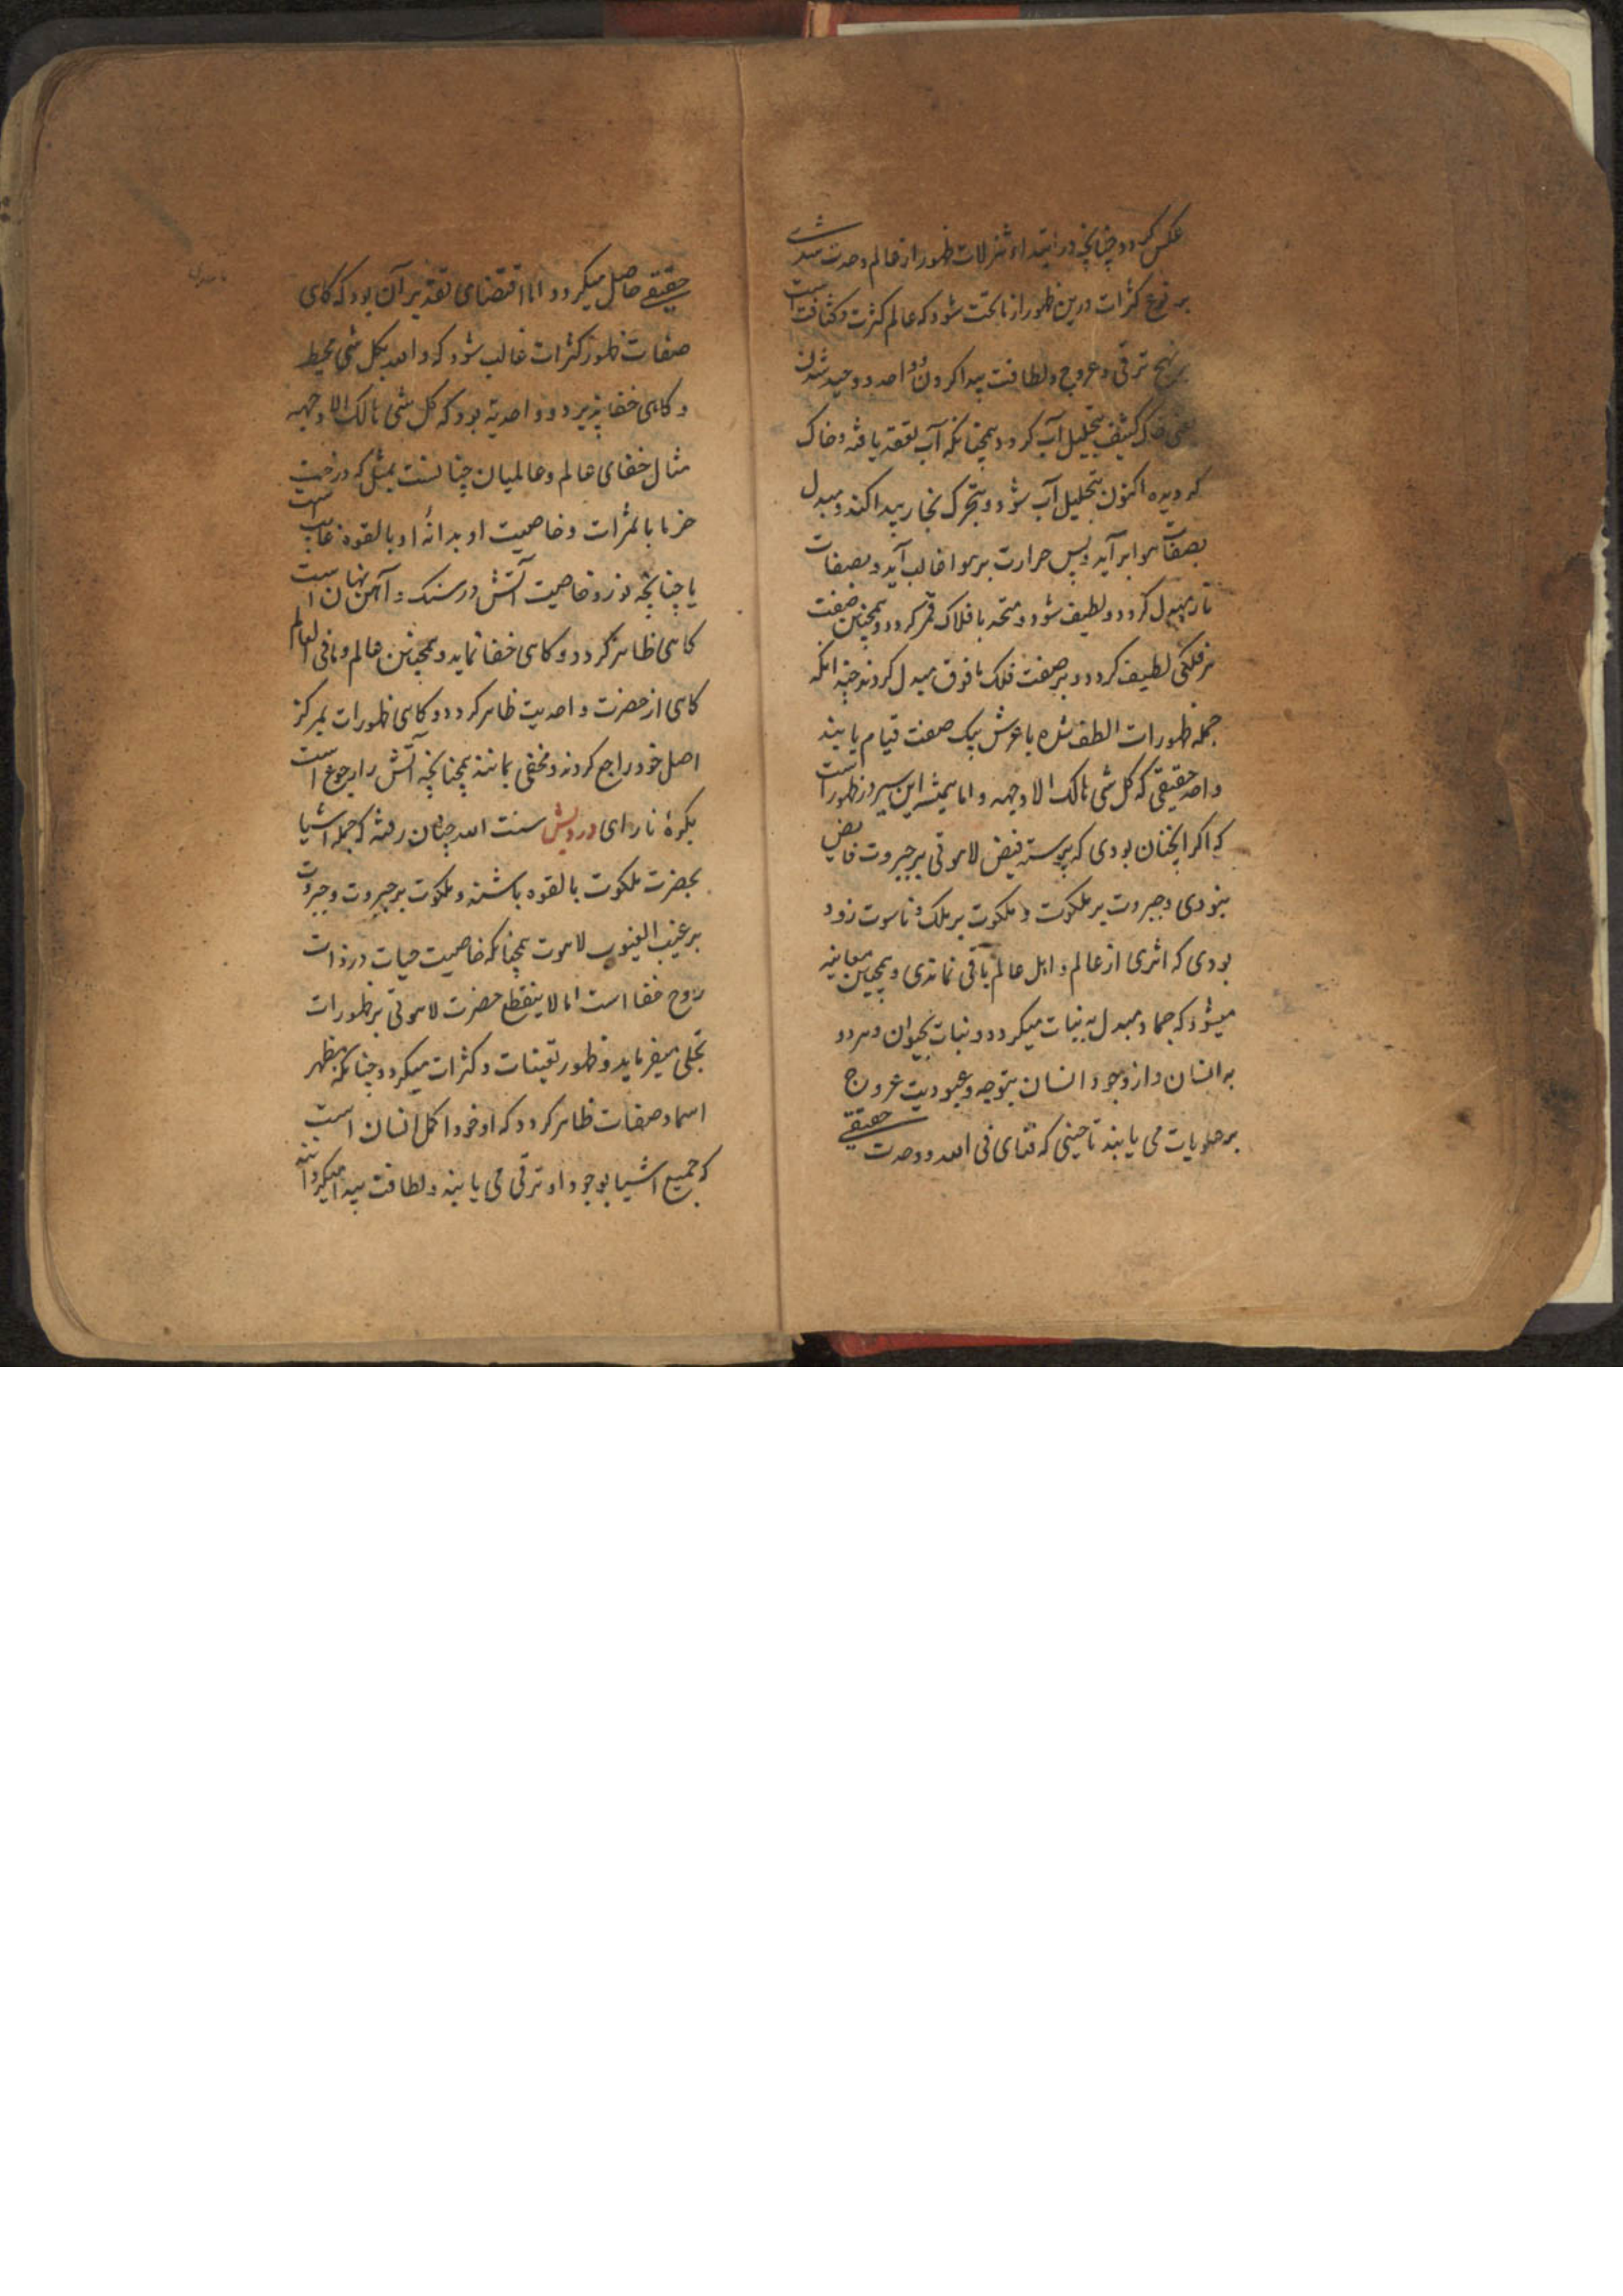 عکس گردد چنانچه در ابتداء تنزلات ظهور از عالم وحدت شدی
بر نوع کثرات درین ظهور از تحت شود که عالم کثرت و کثافت است
بر نهج ترقی و عروج و لطافت پیدا کردن و واحد و وحید شدن
یعنی خاک کثیف بتحلیل آب کردد همچنانکه آب یافته و خاک
کردیده اکنون بتحلیل آب شود و بتحرک بخار پیدا کند و مبدل
بصفات هوا برآید و پس حرارت بر هوا غالب آید و بصفات
نار مبدل کردد و لطیف شود و متحد بافلاک قمر کردد و همچنین صفت
هر فلکی لطیف کردد و بر صفت فلک مافوق مبدل کردند چندانکه
جمله ظهورات الطف شده با عرش بیک صفت قیام یابند
واحد حقیقی که کل شی هالک الا وجهه و اما همیشه این سیر در ظهور است
که اکر آنچنان بودی که پیوسته فیض لاهوتی بر جبروت فایض
نبودی و جبروت بر ملکوت و ملکوت بر ملک و ناسوت زود
بودی که اثری از عالم و اهل عالم باقی نماندی و همچنین معاینه
میشود که جماد مبدل به نبات میکردد و نبات بحیوان و هر دو
به انسان و از وجود انسان بتوجه و عبودیت عروج
بر علویات می یابند تا حینی که فنای فی الله و وحدت حقیقی
حقیقی حاصل میکردد اما اقتضای تقدیر آن بود که کاهی
صفات ظهور کثرات غالب شود که والله بکل شی محیط
و کاهی خفا پذیرد و واحدیة بود که کل شی هالک الا وجهه
مثال خفای عالم و عالمیان چنانست بمثل که درخت
خرما با ثمرات و خاصیت او بدانهٔ او بالقوه غایب است
یا چنانچه نور و خاصیت آتش در سنک و آهن نهان است
کاهی ظاهر کردد و کاهی خفا نماید و همچنین عالم و مافی العالم
کاهی از حضرت واحدیت ظاهر کردد و کاهی ظهورات بمرکز
اصل خود راجع کردند و مخفی بمانند همچنانچه آتش را رجوع است
بکرهٔ نار ای درویش سنت الله چنان رفته که جمله اشیا
بحضرت ملکوت بالقوه باشند و ملکوت بر جبروت و جبروت
بر غیب الغیوب لاهوت همچنانکه خاصیت حیات در ذات
روح خفا است اما لاینقطع حضرت لاهوتی بر ظهورات
تجلی میفرماید و ظهور تعینات و کثرات میکردد چنانکه مظهر
اسما و صفات ظاهر کردد که او خود اکمل انسان است
که جمیع اشیا بوجود او ترقی می یابند و لطافت پیدا میکردانند